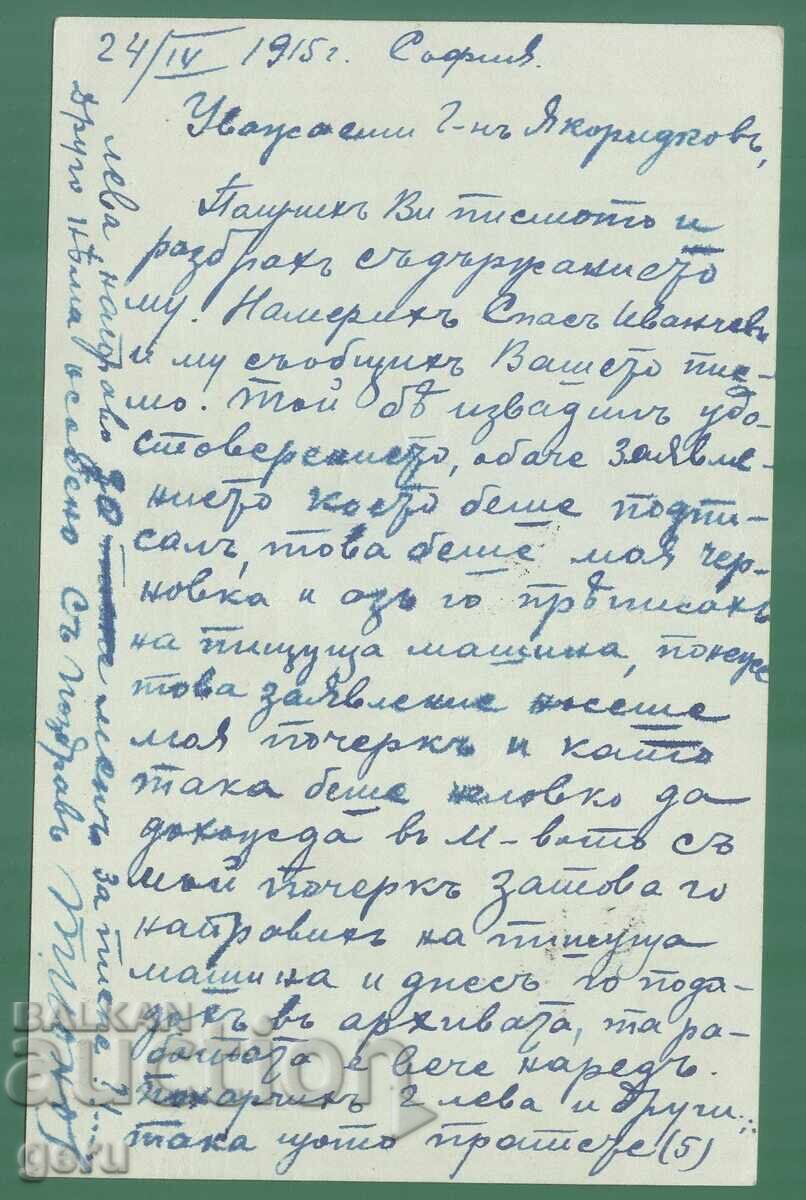 24/IV 1915 г. София.
Уважаеми Г-нъ Якоридковъ,
Получихъ Ви писмото и
разбрахъ съдържанието
му. Намерихъ Спасъ Иванчевъ
и му съобщихъ Вашето пис-
мо. Той бѣ извадилъ удо-
стоверението, обаче заявле-
нието което беше подпи-
салъ, това беше моя чер-
новка и азъ го прѣписахъ
на пищуща машина, понеже
това заявление носеше
моя почеркъ и като
така беше неловко да
дохожда въ М-вото съ
мой почеркъ затова го
направихъ на пищуща
машина и днесъ го пода-
дохъ въ архивата, та ра-
ботата е вече наредъ.
Похарчихъ 2 лева и други
така щото пратете (5)
лева направо до менъ за
Друго нѣма особено Съ поздравъ
BALKAN
auction
geru